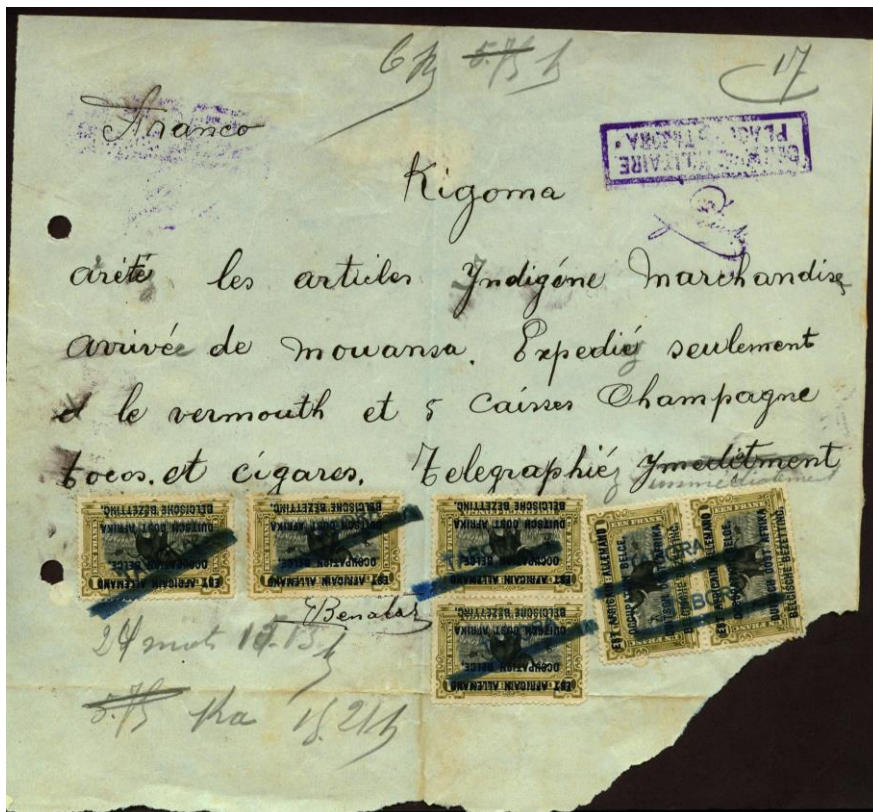 6 fr 5.75 h
17
Franco
MILITAIRE
PLACE TABORA
Kigoma
arété les articles Yndigéne Marchandise
arrivée de mouansa. Expedié seulement
le vermouth et 5 Caisses Champagne
tocos. et cigares. Telegraphiéz Ymedétment
immédiatement
EST AFRICAIN ALLEMAND
OCCUPATION BELGE.
DUITSCH OOST AFRIKA
BELGISCHE BEZETTING.
EST AFRICAIN ALLEMAND
OCCUPATION BELGE.
DUITSCH OOST AFRIKA
BELGISCHE BEZETTING.
EST AFRICAIN ALLEMAND
OCCUPATION BELGE.
DUITSCH OOST AFRIKA
BELGISCHE BEZETTING.
EST AFRICAIN ALLEMAND
OCCUPATION BELGE.
DUITSCH OOST AFRIKA
BELGISCHE BEZETTING.
EST AFRICAIN ALLEMAND
OCCUPATION BELGE.
DUITSCH OOST AFRIKA
BELGISCHE BEZETTING.
EST AFRICAIN ALLEMAND
OCCUPATION BELGE.
DUITSCH OOST AFRIKA
BELGISCHE BEZETTING.
EEN FRANK
TABORA
TABORA
Benatar
24 mots
5.75